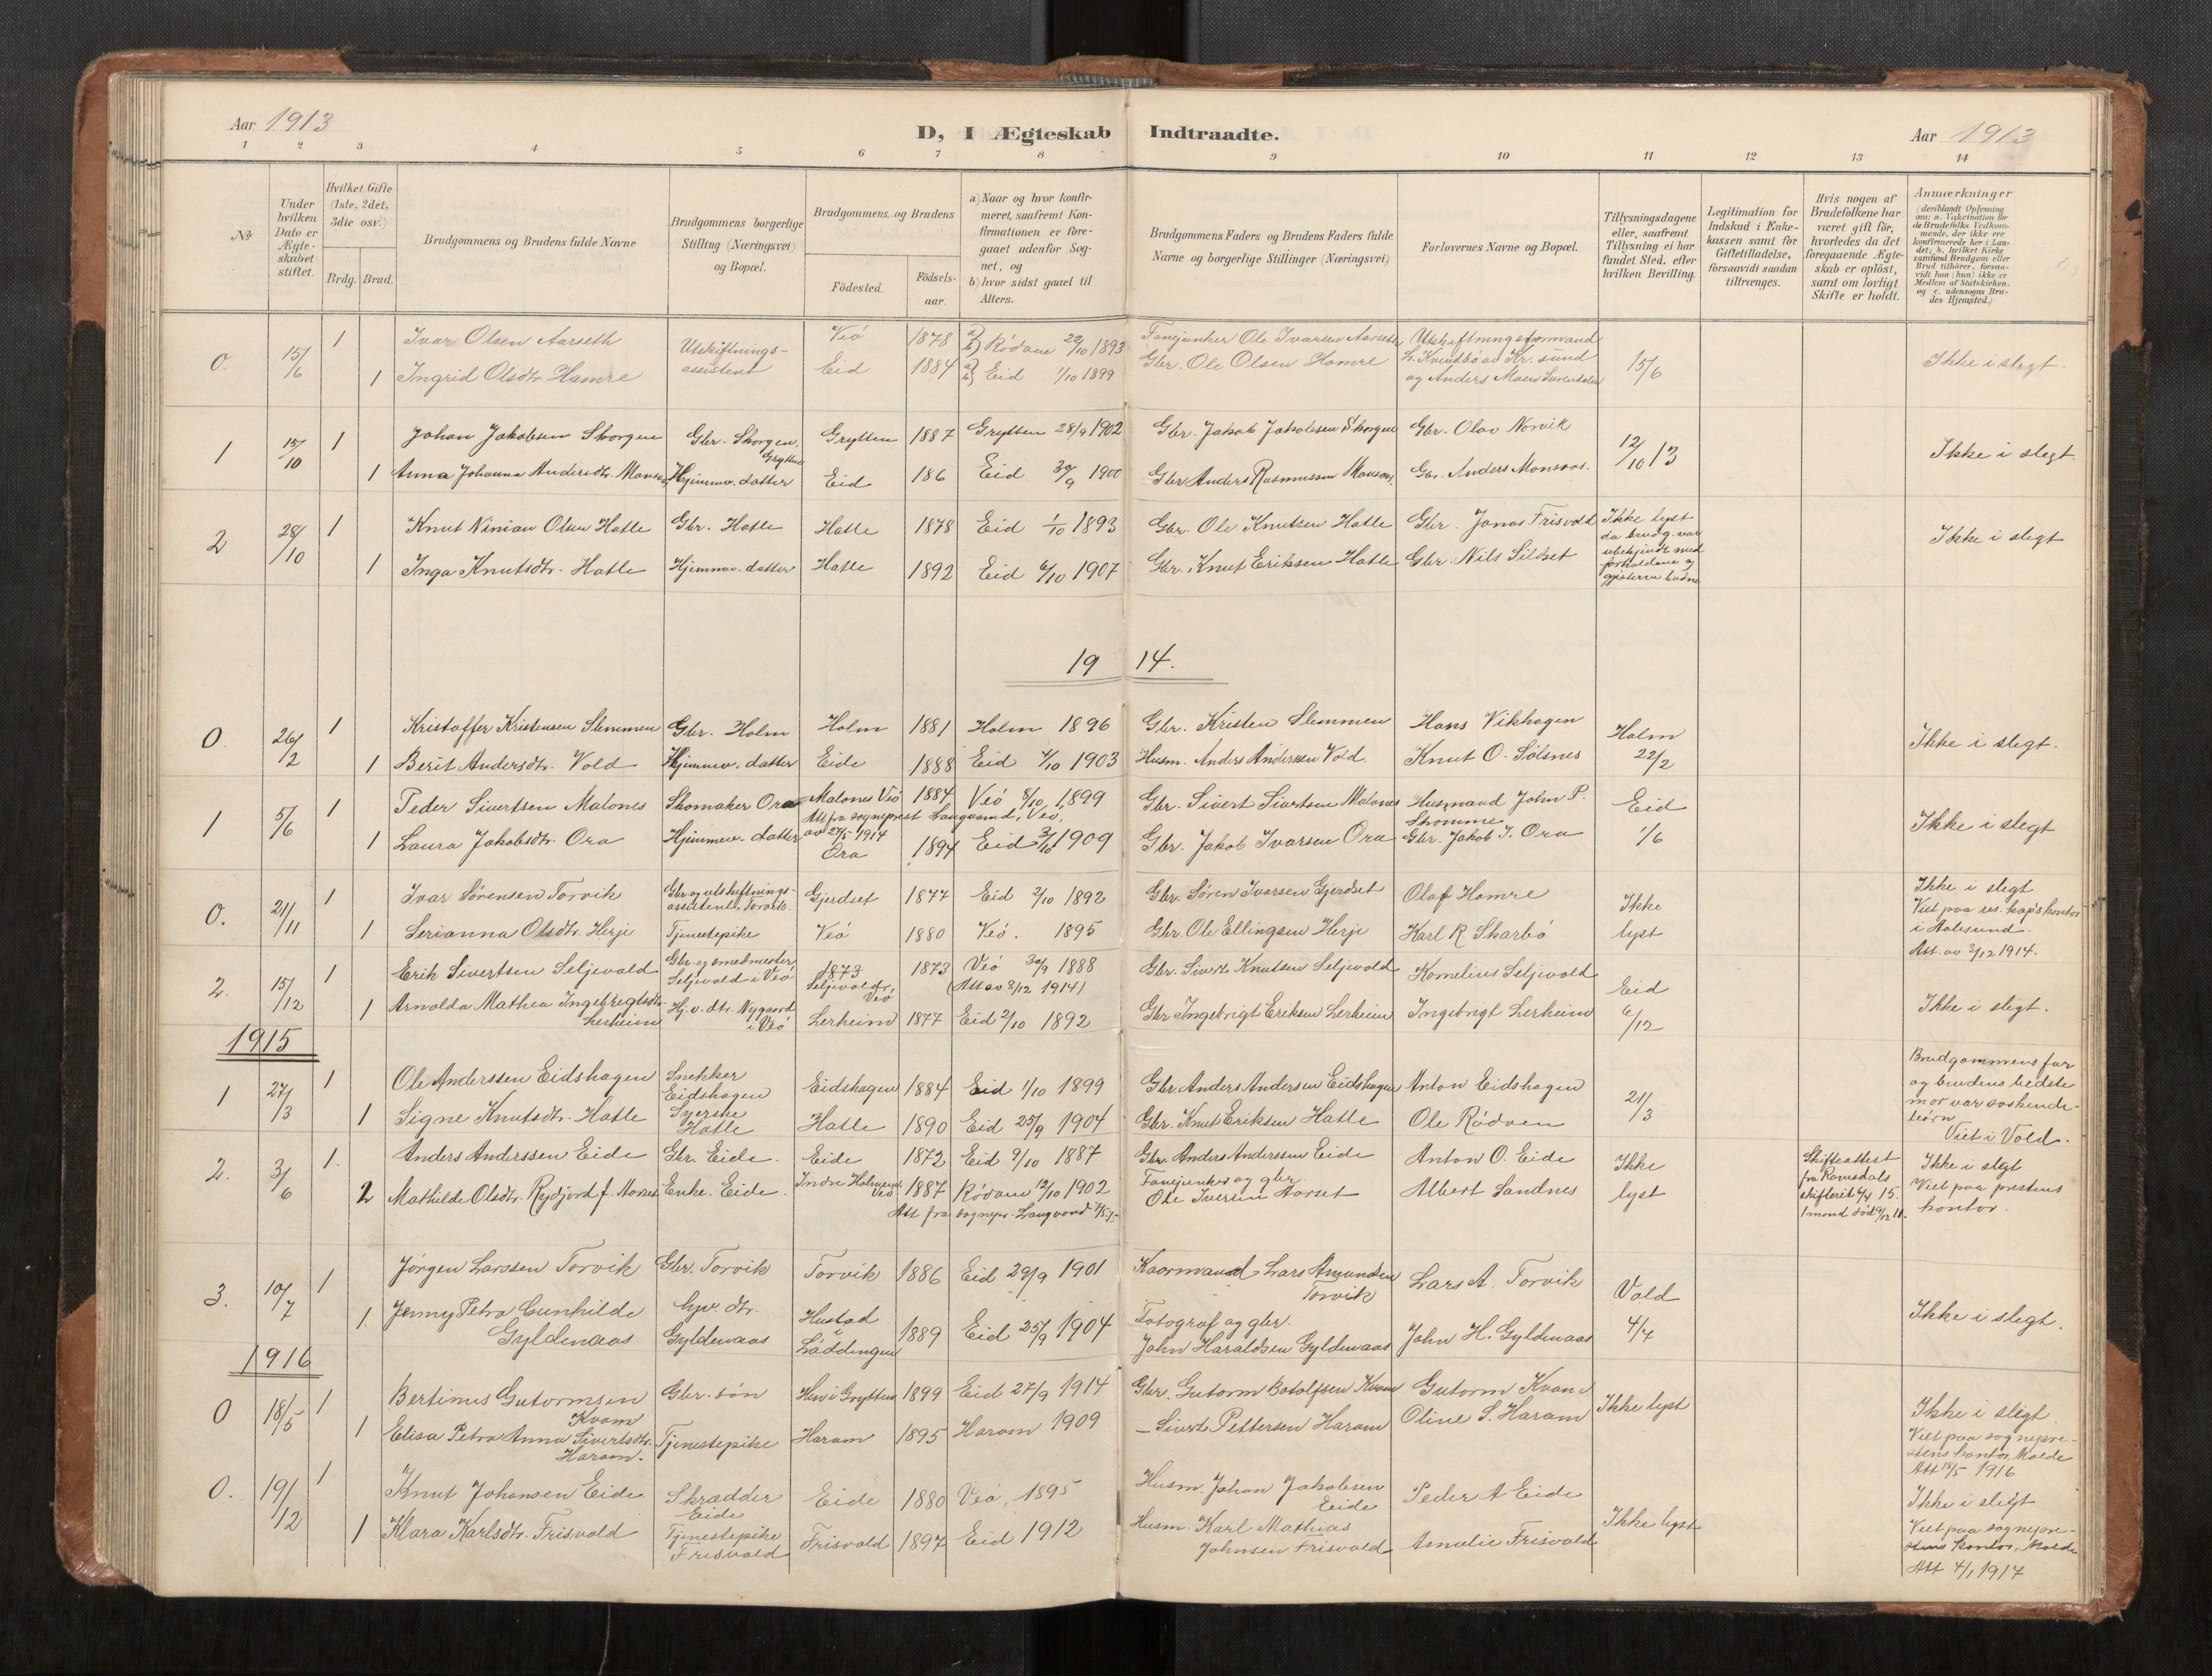 Aar 1913
D, I Ægteskab Indtraadte.
Aar 1913
1 2 3 4 5 6 7 8 9 10 11 12 13 14
No
Under hvilken Dato er Ægteskabet stiftet.
Hvilket Gifte (1ste, 2det, 3die osv.)
Brdg. Brud.
Brudgommens og Brudens fulde Navne
Brudgommens borgerlige Stilling (Næringsvei) og Bopæl.
Brudgommens og Brudens
Fødested.
Fødsels-aar.
a) Naar og hvor konfirmeret, saafremt Konfirmationen er foregaaet udenfor Sognet, og
b) hvor sidst gaaet til Alters.
Brudgommens Faders og Brudens Faders fulde Navne og borgerlige Stillinger (Næringsvei)
Forlovernes Navne og Bopæl.
Tillysningsdagene eller, saafremt Tillysning ei har fundet Sted, efter hvilken Bevilling.
Legitimation for Indskud i Enkekassen samt for Giftetilladelse, forsaavidt saadan tiltrænges.
Hvis nogen af Brudefolkene har været gift før, hvorledes da det foregaaende Ægteskab er opløst, samt om lovligt Skifte er holdt.
Anmærkninger
(deriblandt Oplysning om: a. Vakcination for de Brudefolks Vedkommende, der ikke ere konfirmerede her i Landet; b. hvilket Kirkesamfund Brudgom eller Brud tilhører, forsaavidt han (hun) ikke er Medlem af Statskirken. og c. udensogns Brudes Hjemsted.)
0. 15/6 1 Ivar Olsen Aarseth Utskiftnings-assistent Veö 1878 a) b) Rödven 29/10 1893 Fanejunker Ole Ivarsen Aarseth Utskiftningsformand
1 Ingrid Olsdtr. Hamre Eid 1884 a) b) Eid 1/10 1899 Gbr. Ole Olsen Hamre Kr. sund og Anders Moen 15/6 Ikke i slegt.
1 15/10 1 Johan Jakobsen Skorgen Gbr. Skorgen, Grytten Grytten 1887 Grytten 28/9 1902 Gbr. Jakob Jakobsen Skorgen Gbr. Olav Norvik 12/10 13 Ikke i slegt.
1 Anna Johanna Andersdtr. Monsaas Hjemmev. datter Eid 186 Eid 30/9 1900 Gbr Anders Rasmussen Monsaas Gbr. Anders Monsaas.
2 28/10 1 Knut Ninian Olsen Hatle Gbr. Hatle Hatle 1878 Eid 1/10 1893 Gbr. Ole Knutsen Hatle Gbr. Jonas Frisvold Ikke lyst da brudg. var ubekjendt med forholdene og Ikke i slegt
1 Inga Knutsdtr. Hatle Hjemmev. datter Hatle 1892 Eid 6/10 1907 Gbr. Knut Eriksen Hatle Gbr. Nils Sildset
19 14.
0. 26/2 1 Kristoffer Kristensen Slemmen Gbr. Holm Holm 1881 Holm 1896 Gbr. Kristen Slemmen Hans Vikhagen Holm 22/2 Ikke i slegt.
1 Berit Andersdtr. Vold Hjemmev. datter Eide 1888 Eid 4/10 1903 Husm. Anders Anderssen Vold. Knut O. Sølsnes
1 5/6 1 Peder Sivertsen Malones Skomaker Ora Malones Veö 1884 Veö 8/10 1899 Gbr. Sivert Sivertsen Malones Husmand John P. Skomme Eid 1/6 Ikke i slegt
Att fra sogneprest Langvand, Veö, av 27/5 1914
1 Laura Jakobsdtr. Ora Hjemmev. datter Ora 1894 Eid 3/10 1909 Gbr. Jakob Ivarsen Ora Gbr. Jakob I. Ora
0. 21/11 1 Ivar Sørensen Torvik Gbr. og utskiftnings-assistent. Torvik. Gjerdset 1877 Eid 2/10 1892 Gbr. Søren Ivarsen Gjerdset Olaf Hamre Ikke lyst Ikke i slegt Viet paa res. kap's kontor i Aalesund. Att. av 3/12 1914.
1 Serianna Olsdtr. Herje Tjenestepike Veö 1880 Veö. 1895 Gbr. Ole Ellingsen Herje Karl R. Skarbö
2. 15/12 1 Erik Sivertsen Seljevold Gbr. og smedmester Seljevold i Veö 1873 Seljevold, Veö 1873 Veö 30/9 1888 (Att av 8/12 1914) Gbr. Sivert Knutsen Seljevold Kornelius Seljevold Eid 6/12 Ikke i slegt.
1 Arnolda Mathea Ingebrigtsdtr. Lerheim Hj. v. dtr. Nygaard i Veö Lerheim 1877 Eid 2/10 1892 Gbr Ingebrigt Eriksen Lerheim Ingebrigt Lerheim
1915
1 27/3 1 Ole Anderssen Eidshagen Snekker Eidshagen Eidshagen 1884 Eid 1/10 1899 Gbr. Anders Andersen Eidshagen Anton Eidshagen 21/3 Brudgommens far og brudens bedstemor var søskendebørn Viet i Vold.
1 Signe Knutsdtr. Hatle Syerske Hatle Hatle 1890 Eid 25/9 1904 Gbr. Knut Eriksen Hatle Ole Rödven
2. 3/6 1. Anders Anderssen Eide Gbr. Eide. Eide 1872 Eid 9/10 1887 Gbr. Anders Anderssen Eide Anton O. Eide Ikke lyst Skifteattest fra Romsdals skifteret 6/4 15. 1 mand död 9/12 11. Ikke i slegt Viet paa prestens kontor.
2 Mathilde Olsdtr. Rydjord f. Aarset Enke. Eide. Indre Holmem Veö 1887 Rödven 12/10 1902 Fanejunker og gbr. Ole Iversen Aarset Albert Sandnes
Att fra sognepr. Langvand
3. 10/7 1 Jørgen Larssen Torvik Gbr. Torvik Torvik 1886 Eid 29/9 1901 Kaarmand Lars Amundsen Torvik Lars A. Torvik Vold 4/7 Ikke i slegt.
1. Jenny Petra Gunhilde Gyldenaas hjv. dtr. Gyldenaas Hustad Löddingen 1889 Eid 25/9 1904 Fotograf og gbr. John Haraldsen Gyldenaas John H. Gyldenaas
1916
0 18/5 1 Bertinus Gutormsen Kvam Gbr. søn Hen i Grytten 1899 Eid 27/9 1914 Gbr. Gutorm Botolfsen Kvam Gutorm Kvam Ikke lyst Ikke i slegt Viet paa sogneprestens kontor, Molde Att 18/5 1916
1 Elisa Petra Anna Sivertsdtr. Haram. Tjenestepike Haram 1895 Haram 1909 – Sivert Pettersen Haram Oline S. Haram
0. 19/12 1 Knut Johansen Eide Skrædder Eide Eide 1880 Veö, 1895 Husm. Johan Jakobsen Eide Peder A Eide Ikke lyst Ikke i slegt Viet paa sogneprestens kontor, Molde Att 4/1 1917
1 Klara Karlsdtr. Frisvold Tjenestepike Frisvold Frisvold 1897 Eid 1912 Husm. Karl Mathias Johnsen Frisvold Amalie Frisvold